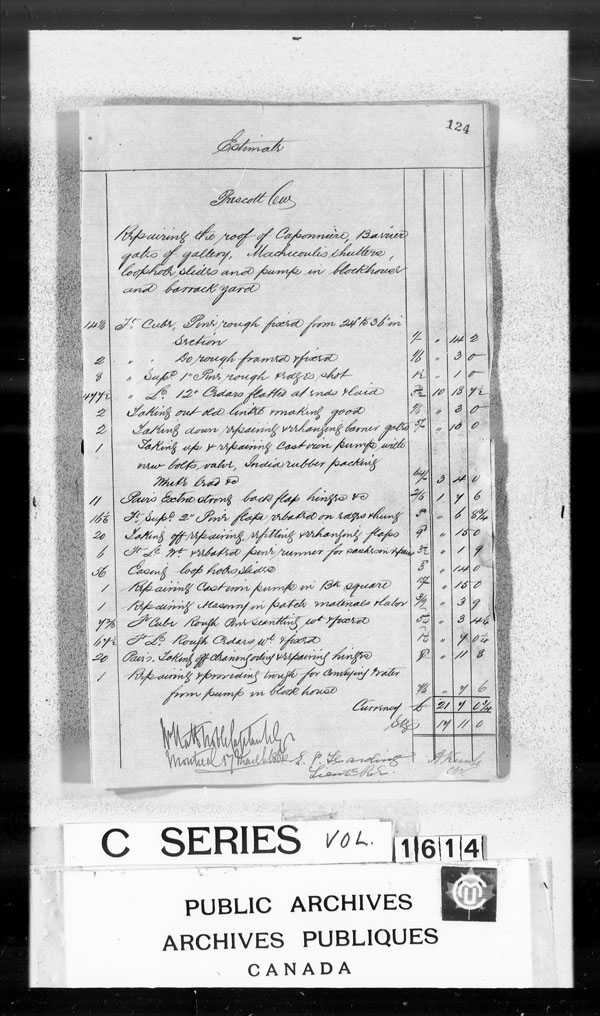 124
Estimate
Prescott CW
Repairing the roof of Caponniere, Barrier
gates of gallery, Machicoulis shutters,
loophole slides and pump in blockhouse
and barrack yard
Ft. Cube, Pine, rough fixed from 24 to 36 in
Section " 14 2
2 " " Do rough framed & fixed " 3 0
8 " Supl. 1" Pine rough & edges shot " 1 0
" Le. 12" Cedars flatted at ends & laid 10 13
2 Taking out old lintel & making good " 3 0
2 Taking down, repairing & rehanging barrier gates " 10 0
1 Taking up & repairing Cast iron pump, with
new bolts, valve, India rubber packing
White lead &c 64/ 3 4 0
11 Pairs Extra strong back flap hinges &c 2/6 1 7 6
Ft. Supl. 2" Pine flaps, rebated on edges & hung " 6 8¾
20 Taking off repairing, refitting & rehanging flaps 9 " 15 0
6 Ft Le Wt. & rebated pine runner for " 1 9
56 Easing loop hole slides 3 " 14 0
1 Repairing Cast iron pump in Bk square " 15 0
1 Repairing Masonry in patch materials & labor 3/9 " 3 9
Ft Cube Rough Pine Scantling wt & fixed " 3
Ft Le. Rough Cedars wt. & fixed " 7
20 Pairs. Taking off straightening & repairing hinges " 11 8
1 Repairing & providing trough for conveying water
from pump in block house " 7 6
Currency £ 21 7 0¾
Stg 17 11 0
Montreal 17 March
Lieut R.E.
C SERIES VOL. 1614
PUBLIC ARCHIVES
ARCHIVES PUBLIQUES
CANADA